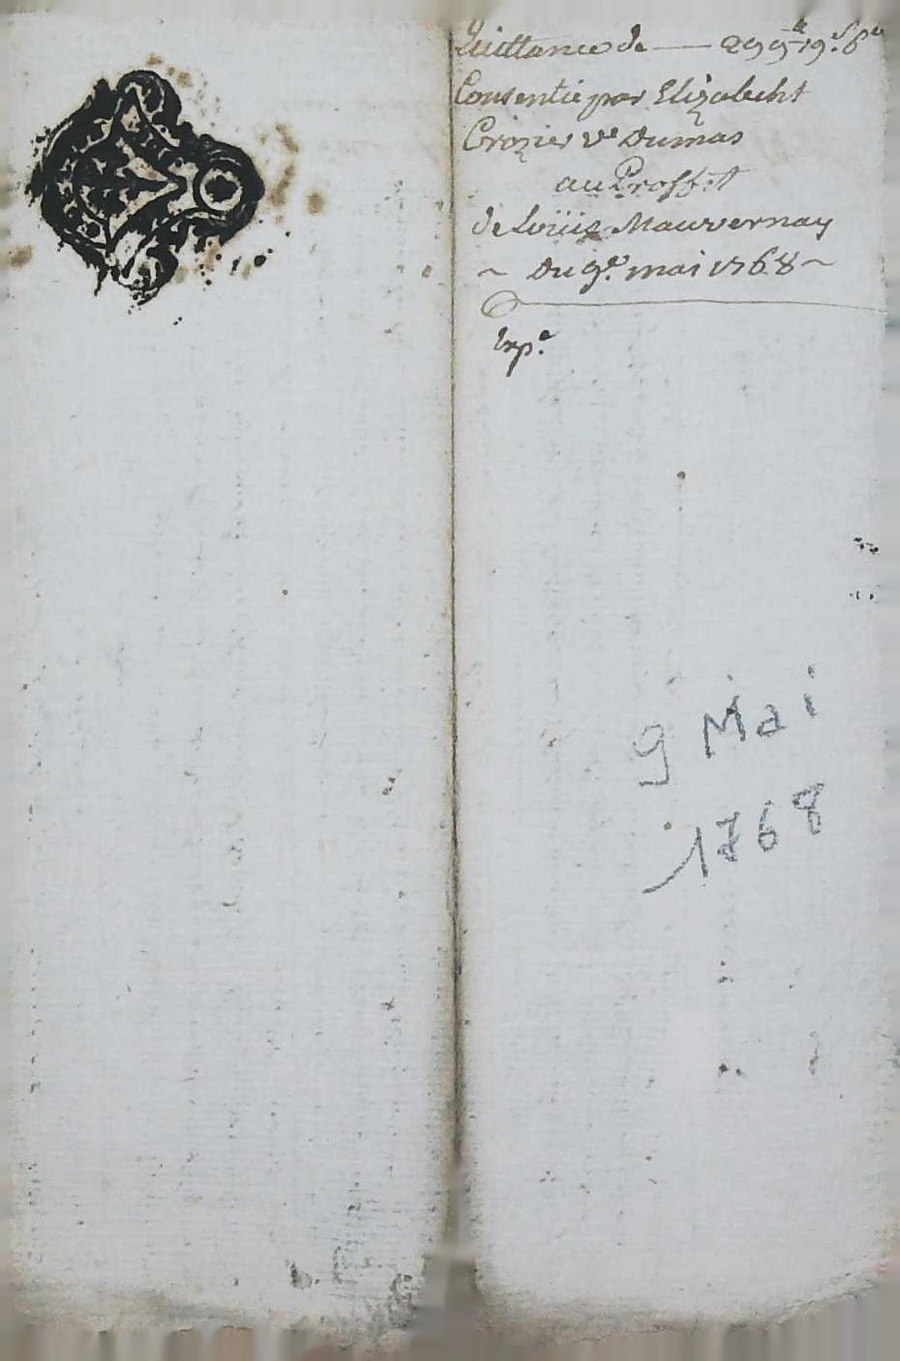 Quittance de — 299ᵗᵗ 19ˢ 6ᵈ
Consentie par Elizabeht
Crozier vᵉ Dumas
au Proffit
de Loüis Mauvernay
~ Du 9ᵉ mai 1768 ~
Expᵉ
9 Mai
1768